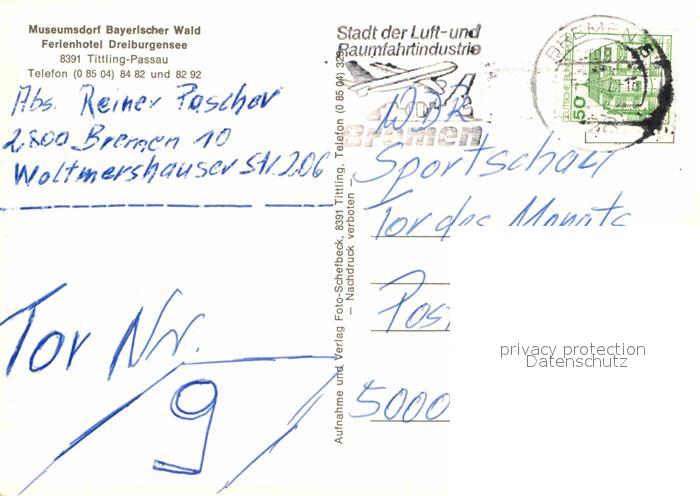 Museumsdorf Bayerischer Wald
Ferienhotel Dreiburgensee
8391 Tittling-Passau
Telefon (0 85 04) 84 82 und 82 92
Abs. Reiner Paschov
2800 Bremen 10
Woltmershauser Str. 206
Tor Nr.
9
Aufnahme und Verlag Foto-Schefbeck, 8391 Tittling, Telefon (0 85 04) 32
— Nachdruck verboten —
Stadt der Luft- und
Raumfahrtindustrie
Bremen
BREMEN
DEUTSCHE BUN
50
WDR
Sportschau
Tor des Monats
Pos
5000
privacy protection
Datenschutz